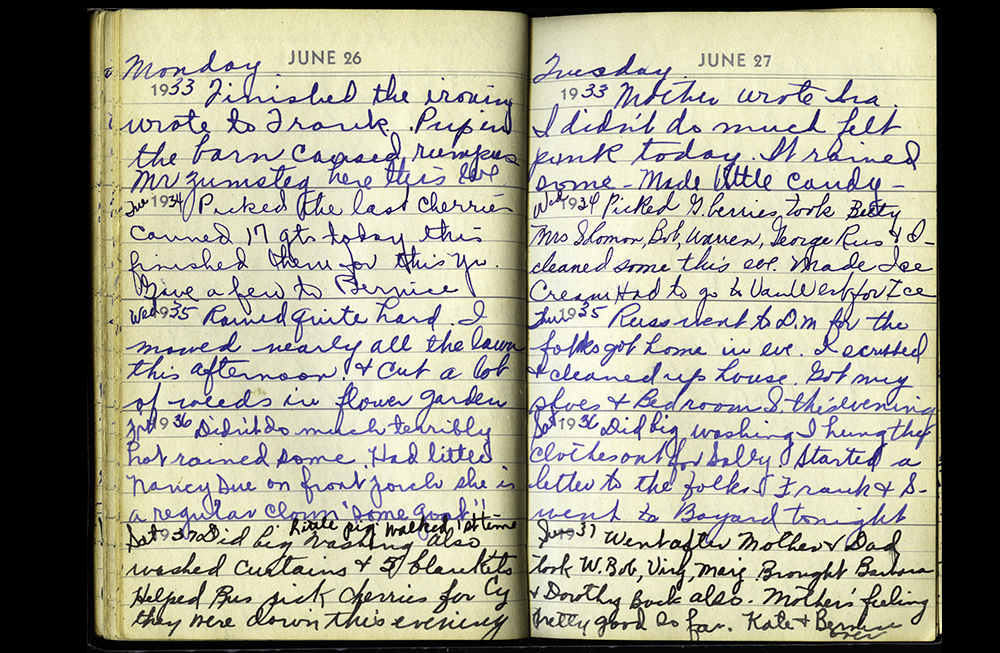 JUNE 26
Monday
1933 Finished the ironing
wrote to Frank. Pup in
the barn caused rumpus
Mr Zumsteg here this eve.
Tue 1934 Picked the last cherries
Canned 17 qts today this
finished them for this yr.
Gave a few to Bernice
Wed 1935 Rained quite hard. I
mowed nearly all the lawn
this afternoon. & cut a lot
of weeds in flower garden
Fri 1936 Didn't do much terribly
hot rained some. Had little
Nancy Sue on front porch she is
a regular clown "some good"!
Little pig walked 1st time
Sat 1937 Did big washing also
washed curtains & 5 blankets
Helped Rus pick cherries for Cy
they were down this evening
JUNE 27
Tuesday
1933 Mother wrote Ira.
I didn't do much felt
punk today. It rained
some - Made little candy -
Wed 1934 Picked G. berries, took Betty
Mrs Shomon, Bob, Warren, George Rus & I -
cleaned some this eve. Made Ice
Cream Had to go to VanWert for Ice
Thu 1935 Russ went to D.M for the
folks got home in eve. I scrubbed
& cleaned up house. Got my
shoes & Bedroom S. this evening
Sat 1936 Did big washing I hung the
clothes out for Sally. Started a
letter to the folks. Frank & S-
went to Bayard tonight
Sun 1937 Went after Mother & Dad
took W. Bob, Virg, Marg Brought Barbara
& Dorothy back also. Mother's feeling
pretty good so far. Kate & Bernice
over